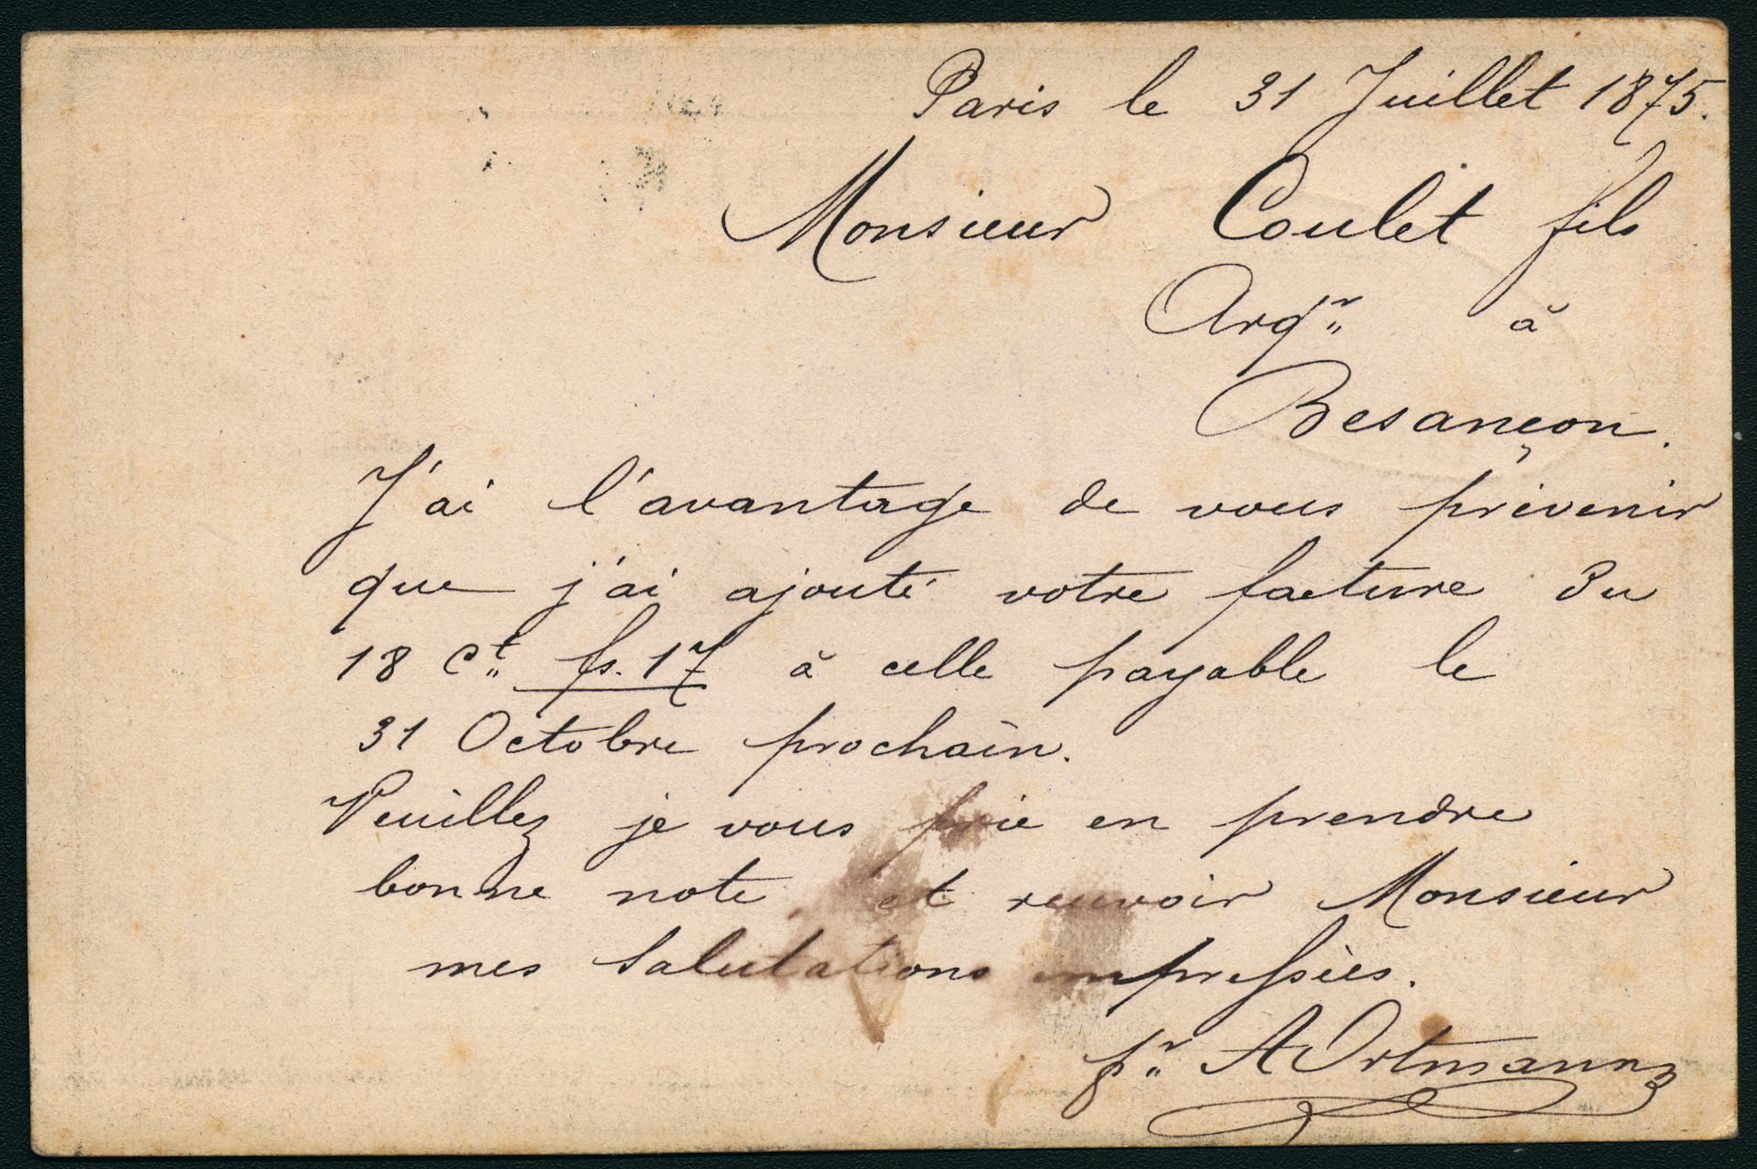 Paris le 31 Juillet 1875.
Monsieur Coulet fils
Arqr à
Besançon.
J'ai l'avantage de vous prévenir
que j'ai ajouté votre facture du
18 Ct fs. 17 à celle payable le
31 Octobre prochain.
Veuillez je vous prie en prendre
bonne note, et recevoir Monsieur
mes salutations empressées.
pr A Ortmann